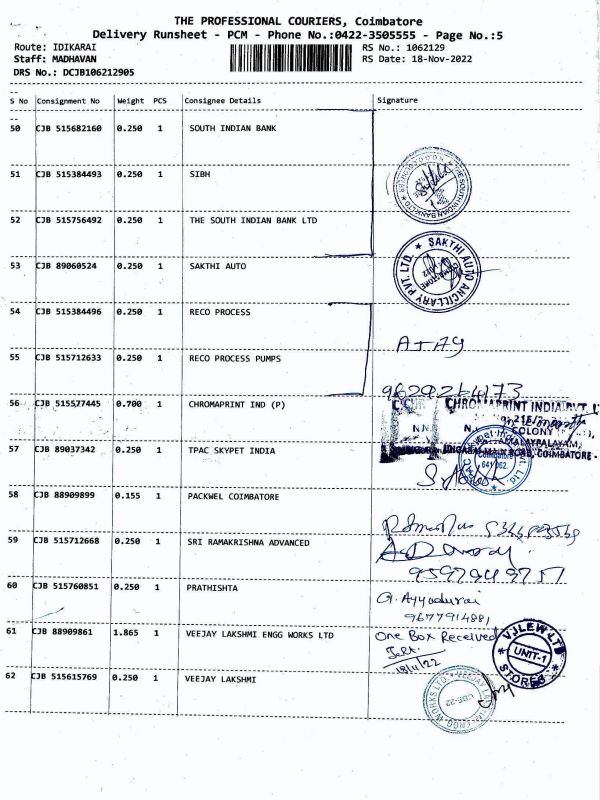 THE PROFESSIONAL COURIERS, Coimbatore
Delivery Runsheet - PCM - Phone No.:0422-3505555 - Page No.:5
Route: IDIKARAI RS No.: 1062129
Staff: MADHAVAN RS Date: 18-Nov-2022
DRS No.: DCJB106212905
S No Consignment No Weight PCS Consignee Details Signature
50 CJB 515682160 0.250 1 SOUTH INDIAN BANK
51 CJB 515384493 0.250 1 SIBH
52 CJB 515756492 0.250 1 THE SOUTH INDIAN BANK LTD
53 CJB 89060524 0.250 1 SAKTHI AUTO
SAKTHI AUTO ANCILLARY PVT. LTD.
54 CJB 515384496 0.250 1 RECO PROCESS
55 CJB 515712633 0.250 1 RECO PROCESS PUMPS
56 CJB 515577445 0.700 1 CHROMAPRINT IND (P)
CHROMAPRINT INDIA PVT.
COLONY
COIMBATORE -
57 CJB 89037342 0.250 1 TPAC SKYPET INDIA
Coimbatore
641 062.
58 CJB 88909899 0.155 1 PACKWEL COIMBATORE
59 CJB 515712668 0.250 1 SRI RAMAKRISHNA ADVANCED
60 CJB 515760851 0.250 1 PRATHISHTA
G. Ayyadurai
9677914881
61 CJB 88909861 1.865 1 VEEJAY LAKSHMI ENGG WORKS LTD
One Box Received
18/11/22
VJLEW LTD
UNIT-1
STORES
62 CJB 515615769 0.250 1 VEEJAY LAKSHMI
CBE-22